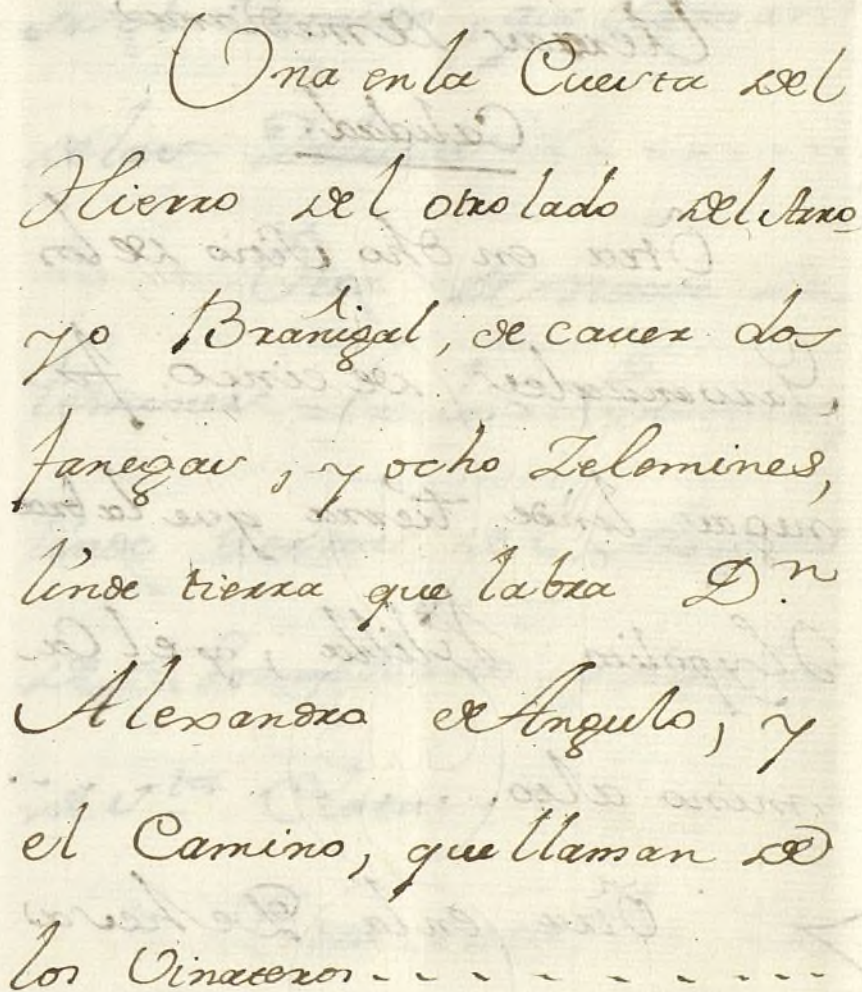 Una en la Cuesta del
Hierro del otro lado del Arro
yo Brañigal, de caver dos
fanegas, y ocho Zelemines,
linde tierra que labra D.n
Alexandro de Angulo, y
el Camino, que llaman de
los Vinateros - - - - - - - -